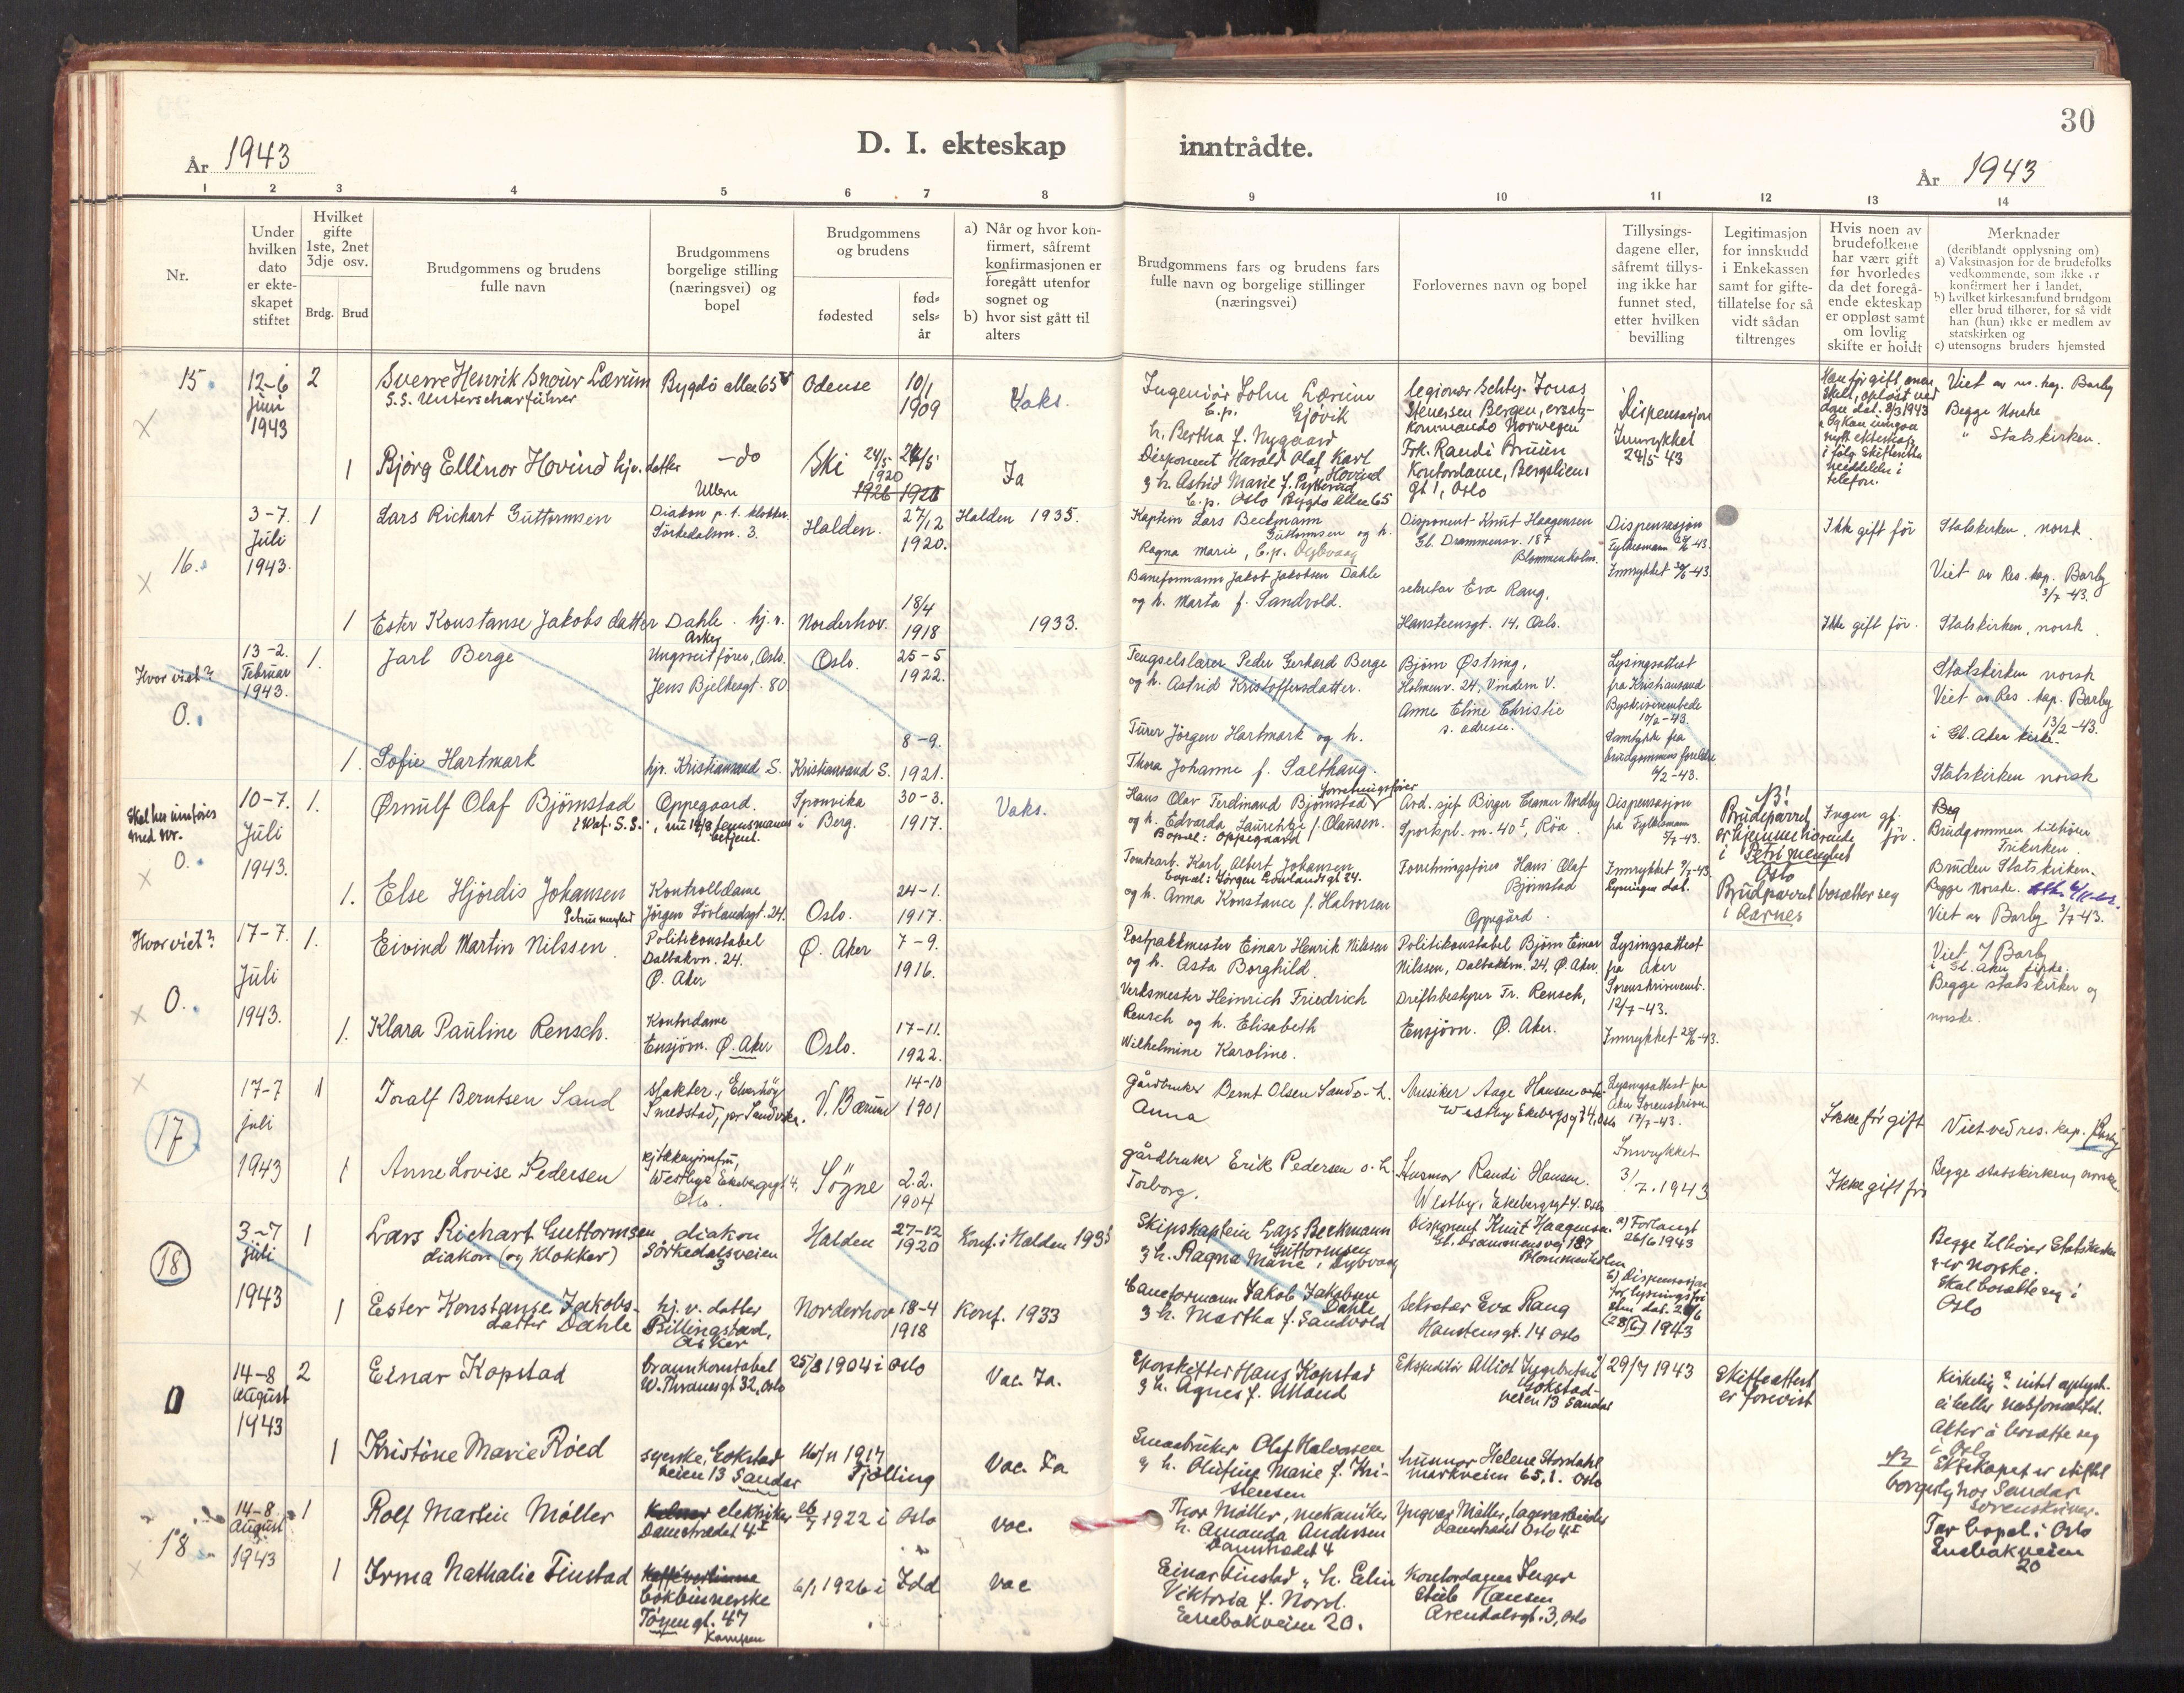 30
År 1943
D. I. ekteskap
inntrådte.
År 1943
1 2 3 4 5 6 7 8 9 10 11 12 13 14
Nr.
Under
hvilken
dato
er ekte-
skapet
stiftet
Hvilket
gifte
1ste, 2net
3dje osv.
Brdg. Brud
Brudgommens og brudens
fulle navn
Brudgommens
borgelige stilling
(næringsvei) og
bopel
Brudgommens
og brudens
fødested
fød-
sels-
år
a) Når og hvor kon-
firmert, såfremt
konfirmasjonen er
foregått utenfor
sognet og
b) hvor sist gått til
alters
Brudgommens fars og brudens fars
fulle navn og borgelige stillinger
(næringsvei)
Forlovernes navn og bopel
Tillysings-
dagene eller,
såfremt tillys-
ing ikke har
funnet sted,
etter hvilken
bevilling
Legitimasjon
for innskudd
i Enkekassen
samt for gifte-
tillatelse for så
vidt sådan
tiltrenges
Hvis noen av
brudefolkene
har vært gift
før hvorledes
da det foregå-
ende ekteskap
er oppløst samt
om lovlig
skifte er holdt
Merknader
(deriblandt opplysning om)
a) Vaksinasjon for de brudefolks
vedkommende, som ikke er
konfirmert her i landet,
b) hvilket kirkesamfund brudgom
eller brud tilhører, for så vidt
han (hun) ikke er medlem av
statskirken og
c) utensogns bruders hjemsted
15.
12-6
Juni
1943
2
Sverre Henrik Lærum
S.S. Unterscharführer
Bygdö allee 65
Odense
10/1
1909
Vaks.
Ingeniör John Lærum
Gjövik
h. Bertha f. Nygaard
Stenersen Bergen, ersatz-
kommando Norwegen
Dispensasjon
Innrykket
24/5 43
Viet av res. kap. Barby
Begge Norske
" Statskirken.
1
Bjørg Ellinor Hovind hjv. datter
-do
Ullern
Ski
24/5
1920
Ja
Disponent Harald Olaf Karl
Hovind
g h. Astrid Marie f.
Oslo Bygdö Allee 65
Frk. Randi Bruun
Kontordame, Bergsliens
gt 1, Oslo
16.
3-7.
Juli
1943.
1
Lars Richart Guttormsen
Diakon
Sörkedalsvn. 3.
Halden.
27/12
1920.
Halden 1935.
Kaptein Lars Beckmann
Guttormsen og h.
Ragna Marie, Dybvaag
Disponent Knut Haagensen
Gl. Drammensv. 187
Blommenholm.
Dispensasjon
Fylkesmann
Innrykket
Ikke gift för
Statskirken, norsk.
Viet av Res. kap. Barby
3/7-43.
1
Ester Konstanse Jakobsdatter Dahle. hj. v.
Asker
Norderhov.
18/4
1918
1933.
Baneformann Jakob Jakobsen Dahle
og h. Marta f. Sandvold.
sekretær Eva Rang,
Hansteensgt. 14. Oslo.
Ikke gift för.
Statskirken, norsk
Hvor viet?
0.
13-2.
Februar
1943.
1.
Jarl Berge
Ungsveitförer, Oslo.
Jens Bjelkesgt. 80
Oslo.
25-5
1922.
Fengselslærer Peder Gerhard Berge
og h. Astrid Kristoffersdatter.
Bjørn Østring,
Holmenv. 24, Vindern V.
Anne Eline Christie
s. adresse.
Lysingsattest
fra Kristiansand
Byskriverembede
Samtykke fra
brudgommens foreldre
6/2-43.
Statskirken norsk
Viet av Res. kap. Barby
13/2-43.
i Gl. Aker kirke.
1.
Sofie Hartmark
hjv. Kristiansand S.
Kristiansand S.
8-9.
1921.
Jörgen Hartmark og h.
Thora Johanne f. Salthaug.
Statskirken norsk
Skal her innføres
med nr.
0.
10-7.
Juli
1943.
1.
Ørnulf Olaf Bjørnstad
Oppegaard.
Sponvika
i Berg.
30-3.
1917.
Vaks.
Hans Olav Ferdinand Bjørnstad forretningsförer
og h. Edvarda Laurentze f. Olausen.
Bopel: Oppegaard
Avd. sjef Birger Cramer Nordby
Sportspl. vn. 40 I, Röa
Dispensasjon
fra Fylkesmann
5/7-43.
N.B!
Brudeparret
er hjemmehørende
i Petri menighet
Oslo
Brudparret bosætter seg
i Aarnes
Ingen gf.
för.
Brudgommen tilhører
Frikirken.
Bruden Statskirken.
Begge Norske.
Viet av Barby 3/7-43.
1.
Else Hjördis Johansen
Petrus menighet
Kontrolldame
Jörgen Lövlandsgt. 24.
Oslo.
24-1.
1917.
Tomtearb. Karl Albert Johansen
bopæl: Jörgen Lövlandsgt 24.
og h. Anna Konstance f. Halvorsen
Forretningsförer Hans Olaf
Bjørnstad
Oppegård.
Hvor viet?
0.
17-7.
Juli
1943.
1.
Eivind Martin Nilssen.
Politikonstabel
Dalbakvn. 24.
Ø. Aker
Ø. Aker
7-9.
1916.
Postpakkmester Einar Henrik Nilssen
og h. Asta Borghild.
Politikonstabel Bjørn Einar
Nilssen, Dalbakkvn. 24, Ø. Aker.
Lysingsattest
fra Aker
Sorenskriverembt.
12/7-43.
Viet 17/7 Barby
i Gl. Aker kirke.
Begge statskirken og
norske.
1.
Klara Pauline Rensch.
Kontordame
Ensjøvn. Ø. Aker
Oslo.
17-11.
1922.
Verksmester Heinrich Friedrich
Rensch og h. Elisabeth
Wilhelmine Karoline.
Driftsbestyrer Fr. Rensch,
Ensjøvn. Ø. Aker.
17
17-7
juli
1943
1
Toralf Berntsen Sand
slakter, Elverhöy
Smedstad, pr Sandvika.
V. Bærum
14-10
1901
gårdbruker Bernt Olsen Sand o. h.
Anna
Musiker Aage Hansen
Westby Ekebergsgt 4, Oslo
Lysingsattest fra
Aker Sorenskriver
17/7-43.
Ikke för gift
Viet ved res. kap. Barby
1
Anne Lovise Pedersen
kjökkenjomfru,
Westbye Ekebergsgt 4,
Oslo.
Sögne
2.2.
1904
gårdbruker Erik Pedersen o. h.
Torborg.
Husmor Randi Hansen.
Westby, Ekebergsgt 4. Oslo
Innrykket
3/7.1943
Ikke gift för
Begge statskirken, norske.
18
3-7
juli
1943
1
Lars Richart Guttormsen
diakon (og klokker)
diakon
Sörkedalsveien
3
Halden
27-12
1920
Konf. i Halden 1935
Skipskaptein Lars Beckmann
Guttormsen
g h. Ragna Marie, Dybvaag
Disponent Knut Haagensen.
Gl. Drammensvej 187
Blommenholm
a) Forlangt
26/6 1943
b) Dispensasjon
for lysning
(28/6) 1943
Begge tilhører Statskirken
g er norske.
Skal bosætte seg i
Oslo
1
Ester Konstanse Jakobs-
datter Dahle
hj. v. datter
Billingstad,
Asker
Norderhov
18-4
1918
Konf. 1933
Baneformann Jakob Jakobsen
Dahle
g h. Martha f. Sandvold
Sekretær Eva Rang
Hansteensgt. 14 Oslo
0
14-8
August
1943
2
Einar Kopstad
brannkonstabel
W. Thranesgt 32, Oslo
25/8 1904 i Oslo
Vac. Ja.
Hans Kopstad
g h. Agnes f. Utland
Gokstad-
veien 13 Sandar
29/7 1943
Skifteattest
er forevist
Akter å bosætte seg
i Oslo
Ekteskapet er stiftet
borgerlig hos Sandar
sorenskriver.
1
Kristine Marie Röed
syerske, Gokstad
veien 13 Sandar
1917
Tjölling
Vac. Ja
Smaabruker Olaf Halvorsen
g h. Olufine Marie f. Kri-
stensen
husmor Helene Stordahl
Markveien 65, I. Oslo
18
14-8
August
1943
1
Rolf Martin Möller
elektriker
Damstrædet 4 I
1922 i Oslo
vac.
Thor Möller, mekaniker
h. Amanda Andersen
Damstrædet 4
Yngvar Möller, lagerarbeider
Damstrædet Oslo 4 I
Tar bopel i Oslo
Enebakveien
20
1
Irma Nathalie Finstad
Kaffévertinne
bokbinnerske
Töyengt. 47
Kampen
6/1 1926 i Idd
vac
Einar Finstad, h. Elin
Viktoria f. Nord.
Enebakveien 20.
Kontordame Inger
Hansen
Arendalsgt. 3, Oslo